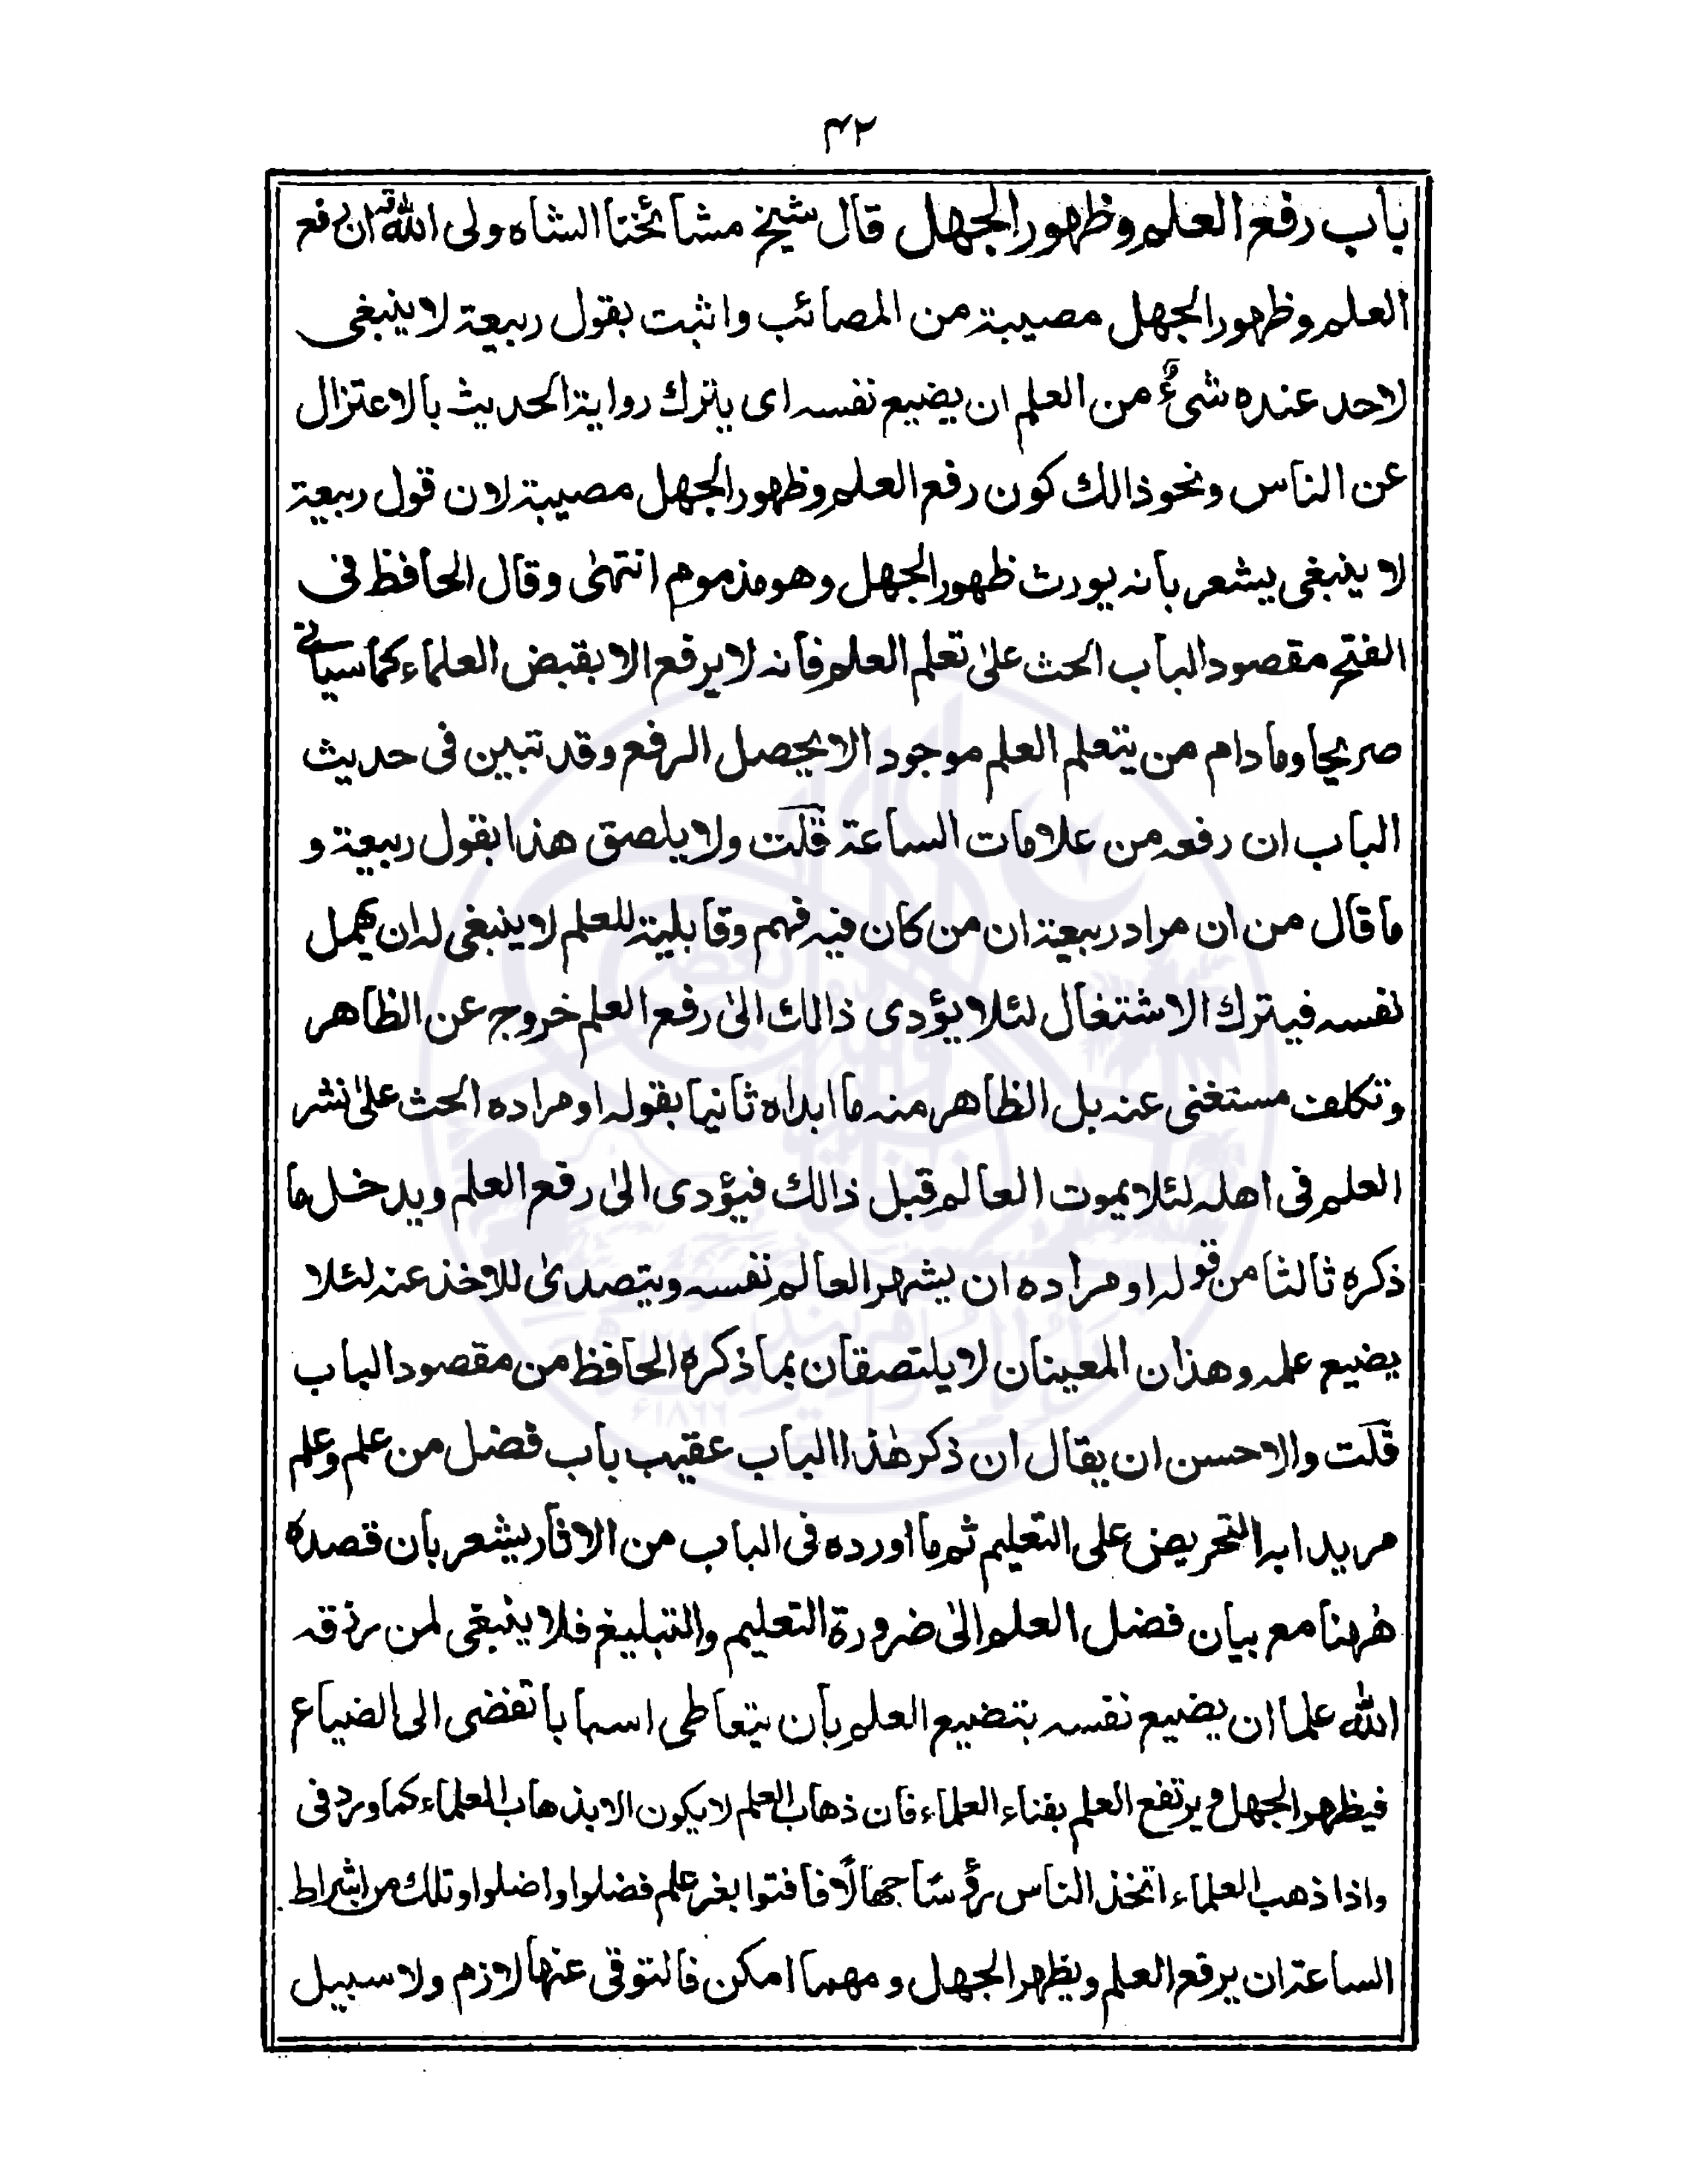 ۴۲
باب رفع العلم وظهور الجهل قال شيخ مشائخنا الشاه ولى الله ان رفع
العلم وظهور الجهل مصيبة من المصائب واثبت بقول ربيعة لا ينبغى
لاحد عنده شىء من العلم ان يضيع نفسه اى يترك رواية الحديث بالاعتزال
عن الناس ونحو ذالك كون رفع العلم وظهور الجهل مصيبة لان قول ربيعة
لا ينبغى يشعر بانه يورث ظهور الجهل وهو مذموم انتهىٰ وقال الحافظ فى
الفتح مقصود الباب الحث علىٰ تعلم العلم فانه لا يرفع الا بقبض العلماء كما سياتى
صريحا وما دام من يتعلم العلم موجود الا يحصل الرفع وقد تبين فى حديث
الباب ان رفعه من علامات الساعة قلت ولا يلصق هذا بقول ربيعة و
ما قال من ان مراد ربيعة ان من كان فيه فهم وقابلية للعلم لا ينبغى له ان يهمل
نفسه فيترك الاشتغال لئلا يؤدى ذالك الىٰ رفع العلم خروج عن الظاهر
وتكلف مستغنى عنه بل الظاهر منه ما ابداه ثانيا بقوله او مراده الحث علىٰ نشر
العلم فى اهله لئلا يموت العالم قبل ذالك فيؤدى الىٰ رفع العلم ويدخل ما
ذكره ثالثا من قوله او مراده ان يشهر العالم نفسه ويتصدىٰ للاخذ عنه لئلا
يضيع علمه وهذان المعينان لا يلتصقان بما ذكره الحافظ من مقصود الباب
قلت والاحسن ان يقال ان ذكر هٰذا الباب عقيب باب فضل من علم وعلم
مريدا به التحريض على التعليم ثم ما اورده فى الباب من الاثار يشعر بان قصده
هٰهنا مع بيان فضل العلم الىٰ ضرورة التعليم والتبليغ فلا ينبغى لمن رزقه
الله علما ان يضيع نفسه بتضيع العلم بان يتعاطى اسبابا تفضى الى الضياع
فيظهر الجهل و يرتفع العلم بفناء العلماء فان ذهاب العلم لا يكون الا بذهاب العلماء كما ورد فى
واذا ذهب العلماء اتخذ الناس رؤسًا جهالًا فافتوا بغير علم فضلوا واضلوا وتلك من اشراط
الساعة ان يرفع العلم ويظهر الجهل و مهما امكن فالتوقى عنها لازم ولا سبيل